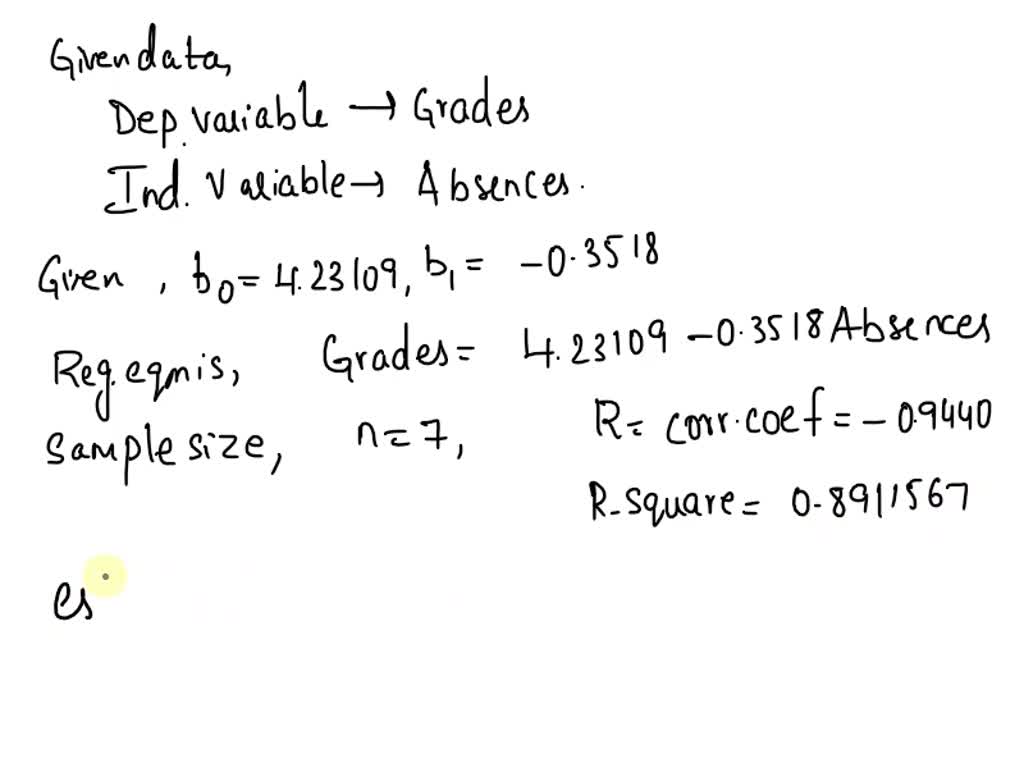 Given data,
Dep. variable → Grades
Ind. Variable → Absences.
Given, b0 = 4.23109, b1 = -0.3518
Reg. eqn is, Grades = 4.23109 - 0.3518 Absences
Sample size, n = 7, R = corr. coef = -0.9440
R-square = 0.8911567
es